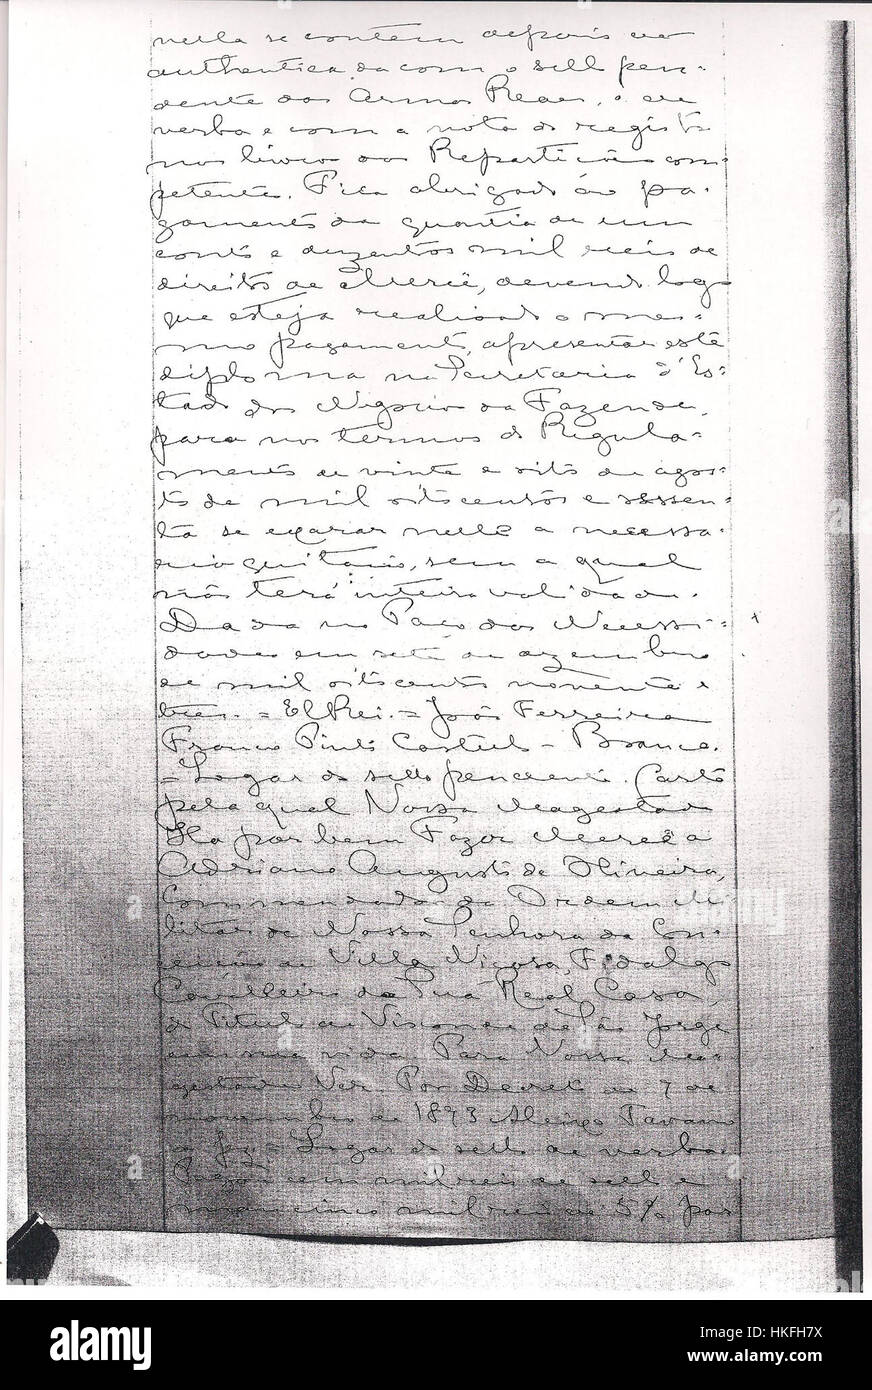 nella se contem depois de
authenticada com o sello pen-
dente das Armas Reaes, o de
verba e com a nota do registo
nos livros das Repartições com-
petentes. Fica obrigado ao pa-
gamento da quantia de um
conto e duzentos mil reis de
direitos de Mercê, devendo logo
que esteja realisado o mes-
mo pagamento, apresentar este
diploma na Secretaria d'Es-
tado dos Negocios da Fazenda,
para nos termos do Regula-
mento de vinte e oito de agos-
to de mil oitocentos e sessen-
ta se exarar nelle a necessa-
ria quitação, sem a qual
não terá inteira validade.
Dada no Paço das Necessi-
dades em sete de dezembro
de mil oitocentos noventa e
tres. = El Rei. = João Ferreira
Franco Pinto Castello-Branco.
= Logar do sello pendente. Carta
pela qual Vossa Magestade
Ha por bem Fazer Mercê a
Adriano Augusto de Oliveira,
Commendador da Ordem Mi-
litar de Nossa Senhora da Con-
ceição de Villa Viçosa, Fidalgo
Cavalleiro da Sua Real Casa,
do Titulo de Visconde de São Jorge
em sua vida. Para Vossa Ma-
gestade Ver. Por Decreto de 7 de
novembro de 1893 Tavares
a fez = Logar do sello de verba
Pagou cem mil reis de sello e
mais cinco mil reis de 5% por
alamy
a
Image ID: HKFH7X
www.alamy.com